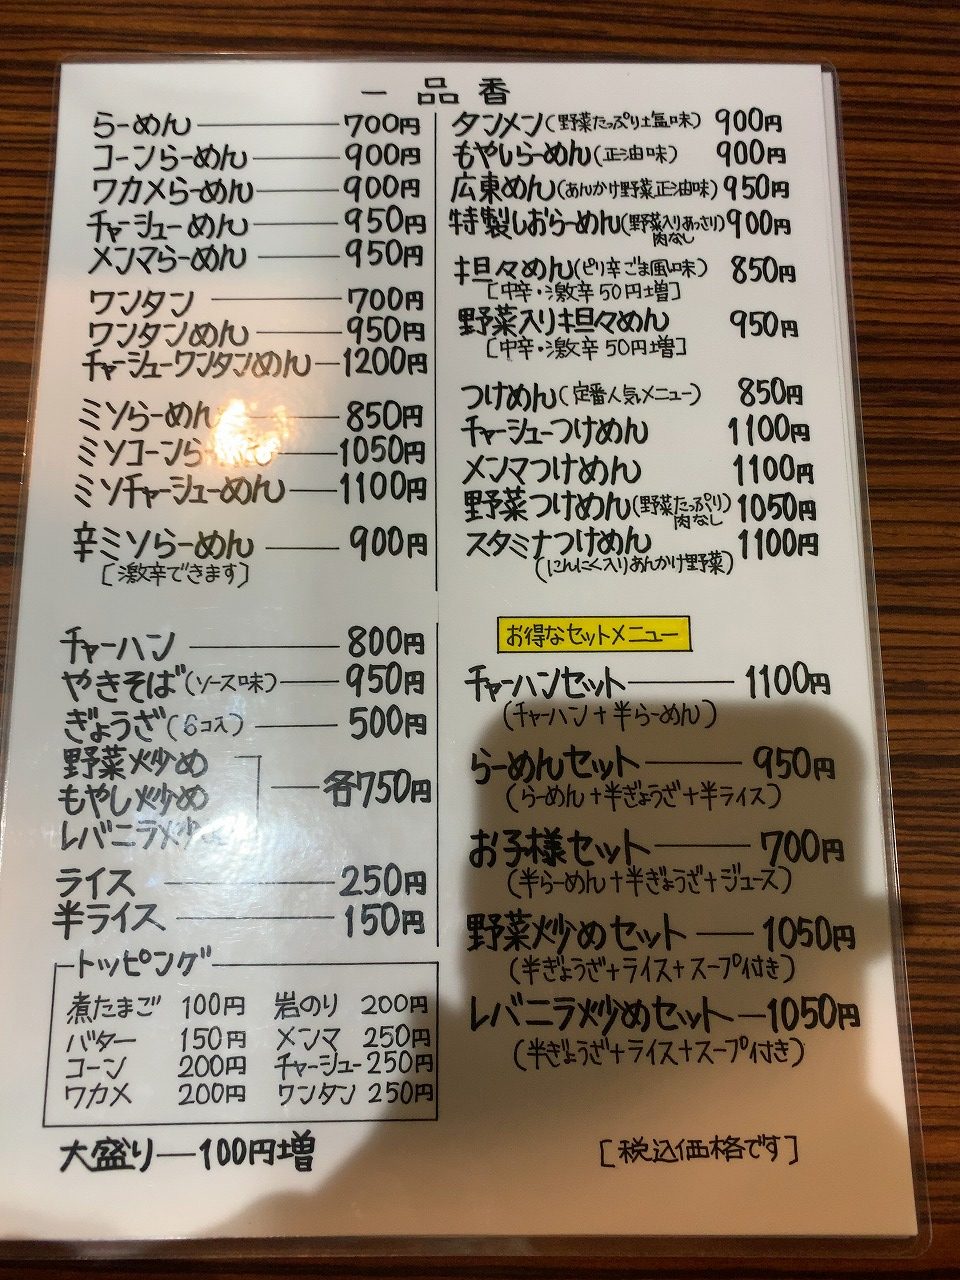 一品香
らーめん 700円
コーンらーめん 900円
ワカメらーめん 900円
チャーシューめん 950円
メンマらーめん 950円
ワンタン 700円
ワンタンめん 950円
チャーシューワンタンめん 1200円
ミソらーめん 850円
ミソコーンらーめん 1050円
ミソチャーシューめん 1100円
辛ミソらーめん 900円
[激辛できます]
チャーハン 800円
やきそば(ソース味) 950円
ぎょうざ(6コ入) 500円
野菜炒め
もやし炒め 各750円
レバニラ炒め
ライス 250円
半ライス 150円
トッピング
煮たまご 100円 岩のり 200円
バター 150円 メンマ 250円
コーン 200円 チャーシュー 250円
ワカメ 200円 ワンタン 250円
大盛り 100円増
タンメン(野菜たっぷり塩味) 900円
もやしらーめん(正油味) 900円
広東めん(あんかけ野菜正油味) 950円
特製しおらーめん(野菜入りあっさり 肉なし) 900円
坦々めん(ピリ辛ごま風味) 850円
[中辛・激辛50円増]
野菜入り坦々めん 950円
[中辛・激辛50円増]
つけめん(定番人気メニュー) 850円
チャーシューつけめん 1100円
メンマつけめん 1100円
野菜つけめん(野菜たっぷり 肉なし) 1050円
スタミナつけめん 1100円
(にんにく入りあんかけ野菜)
お得なセットメニュー
チャーハンセット 1100円
(チャーハン+半らーめん)
らーめんセット 950円
(らーめん+半ぎょうざ+半ライス)
お子様セット 700円
(半らーめん+半ぎょうざ+ジュース)
野菜炒めセット 1050円
(半ぎょうざ+ライス+スープ付き)
レバニラ炒めセット 1050円
(半ぎょうざ+ライス+スープ付き)
[税込価格です]